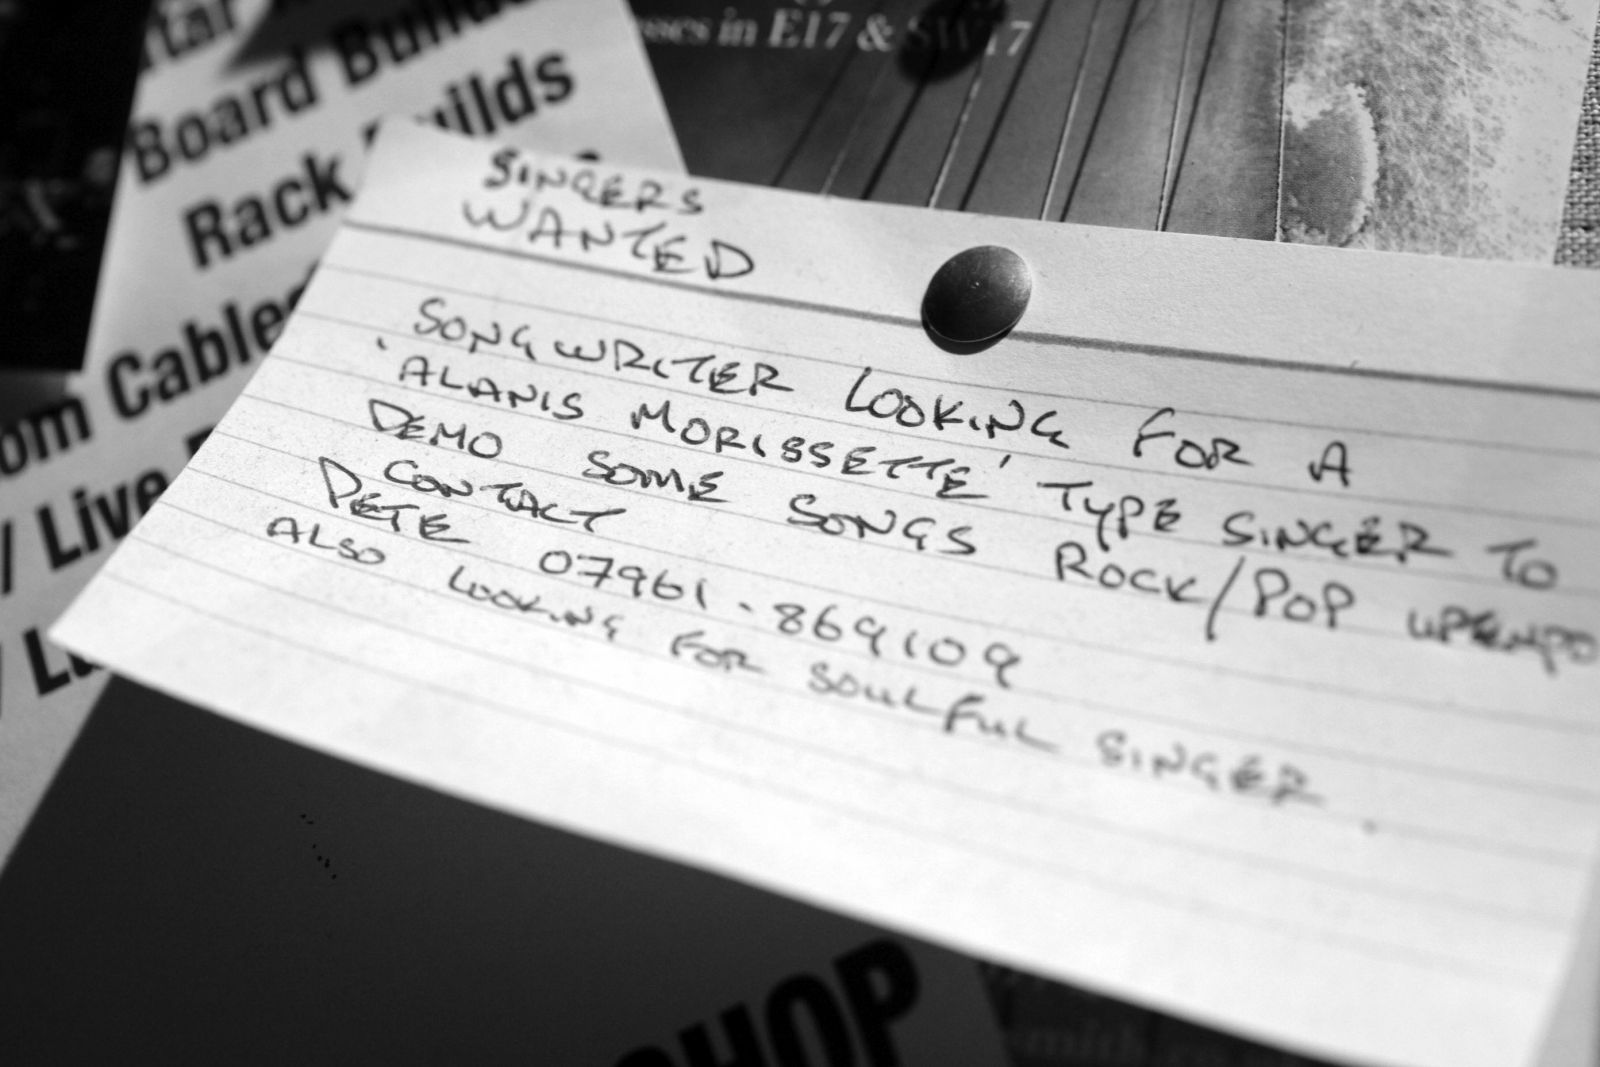 Board
Rack Builds
Cables
/ Live
sses in E17 & SW17
SINGERS
WANTED
SONGWRITER LOOKING FOR A
'ALANIS MORISSETTE' TYPE SINGER TO
DEMO SOME SONGS ROCK/POP UPTEMPO
CONTACT
PETE 07961-869109
ALSO LOOKING FOR SOULFUL SINGER.
HOP